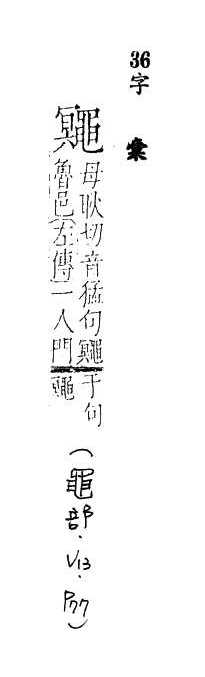 36
字彙
鼆
母耿切音猛句鼆
魯邑左傳一人門
于句
鼆
(黽部.V13.P77)